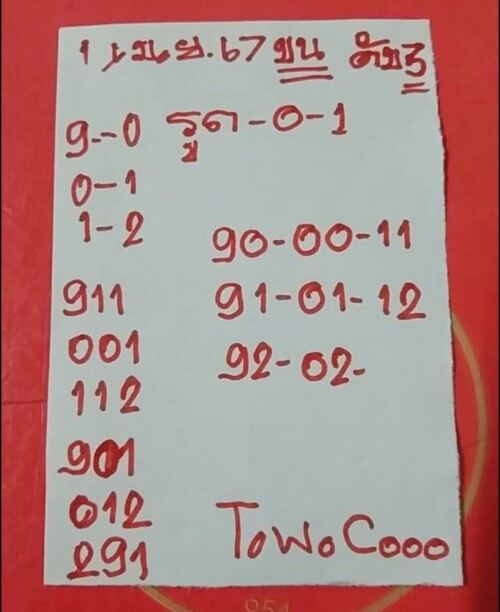 1 เม.ย.67 บน ดับ3
9-0 รูด-0-1
0-1
1-2
90-00-11
911
91-01-12
001
92-02-
112
901
012
291
TowoCooo
951